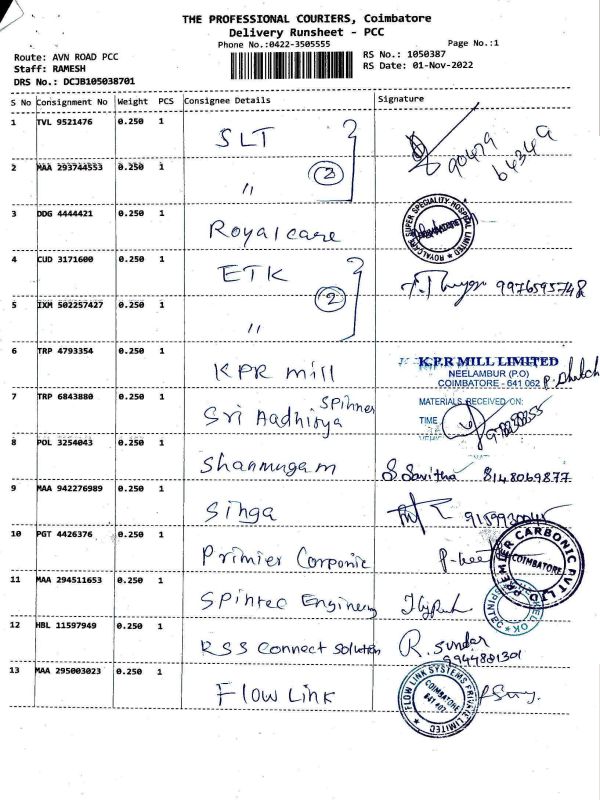 THE PROFESSIONAL COURIERS, Coimbatore
Delivery Runsheet - PCC
Phone No.:0422-3505555
Page No.:1
Route: AVN ROAD PCC
RS No.: 1050387
Staff: RAMESH
RS Date: 01-Nov-2022
DRS No.: DCJB105038701
S No Consignment No Weight PCS Consignee Details Signature
1 TVL 9521476 0.250 1 SLT 90479
64349
2 MAA 293744553 0.250 1 " 2
3 DDG 4444421 0.250 1 Royalcare
ROYALCARE SUPER SPECIALITY HOSPITAL LIMITED
4 CUD 3171600 0.250 1 ETK 9976595748
5 IXM 502257427 0.250 1 " 2
6 TRP 4793354 0.250 1 KPR mill
K.P.R MILL LIMITED
NEELAMBUR (P.O)
COIMBATORE - 641 062
7 TRP 6843880 0.250 1 Sri Aadhisya Spinner
MATERIALS RECEIVED ON:
TIME
8 POL 3254043 0.250 1 Shanmugam S. Savitha 8148069877
9 MAA 942276989 0.250 1 Singa
10 PGT 4426376 0.250 1 Primier Corponic
PREMIER CARBONIC PVT LTD
COIMBATORE
11 MAA 294511653 0.250 1 Spintec Engineery
12 HBL 11597949 0.250 1 RSS connect solution R. Sundar
9944881301
13 MAA 295003023 0.250 1 Flow Link
FLOW LINK SYSTEMS PRIVATE LIMITED
COIMBATORE
641 407